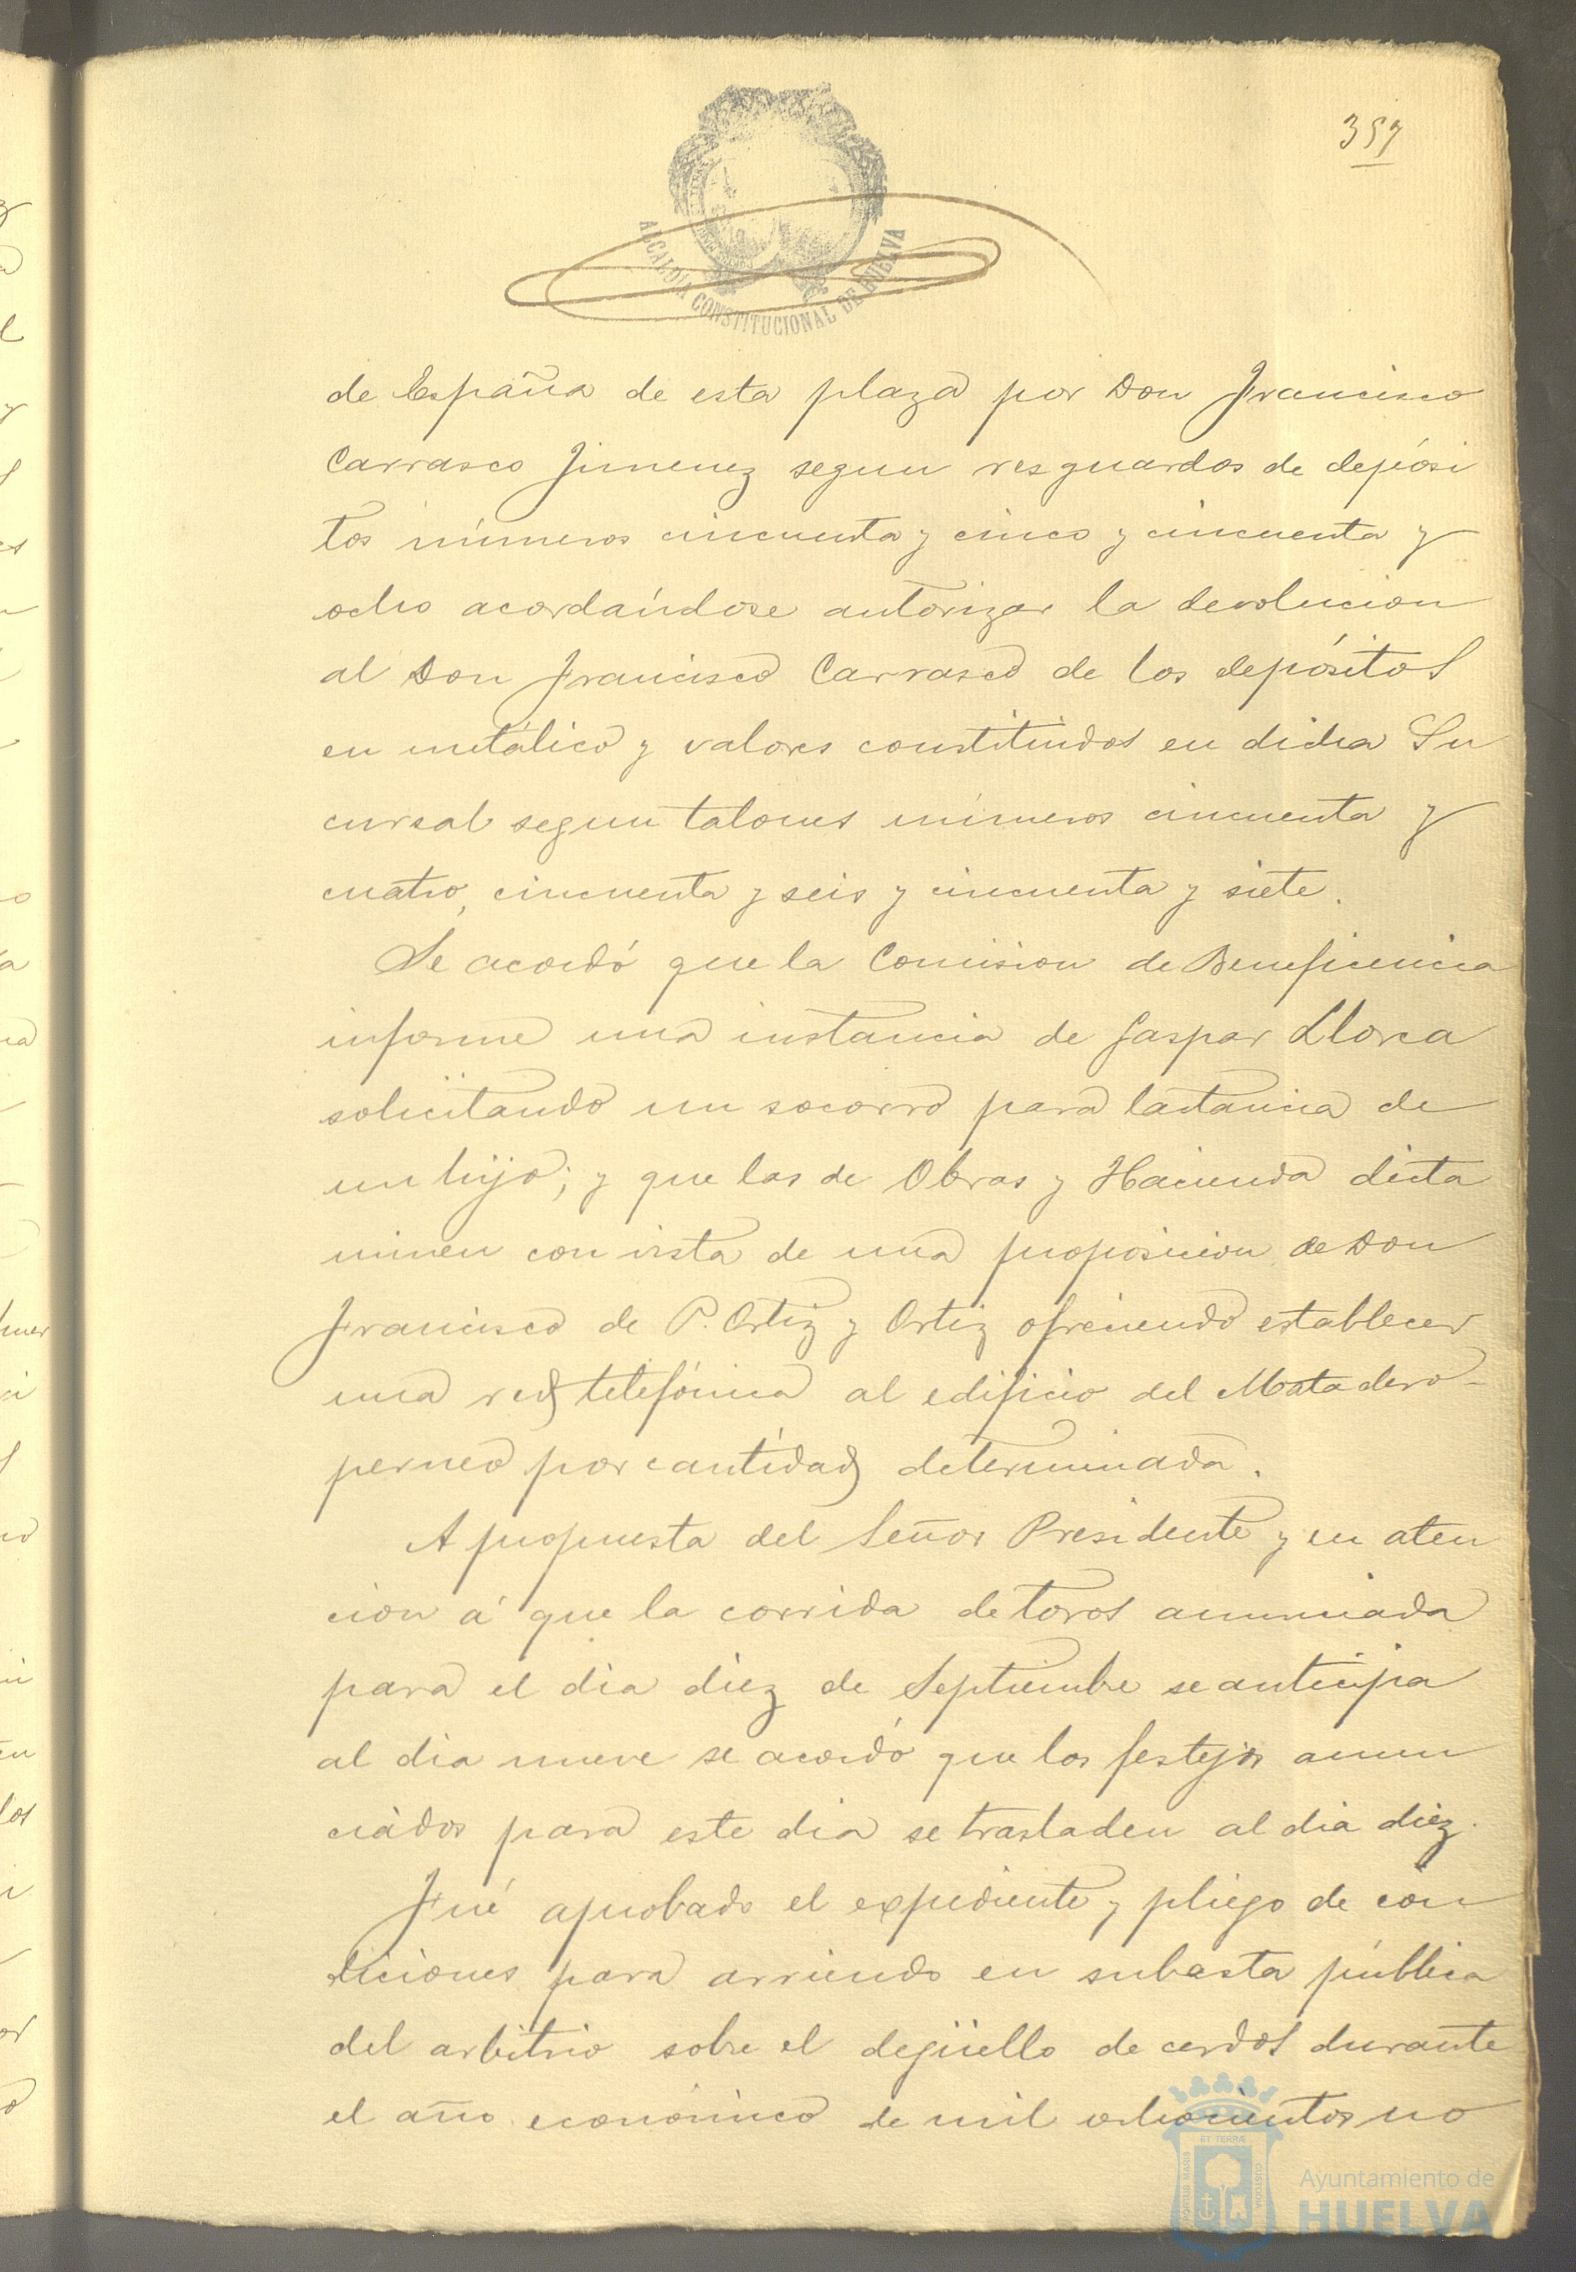 357
ALCALDIA CONSTITUCIONAL DE HUELVA
de España de esta plaza por Don Francisco
Carrasco Jimenez segun resguardos de depósi
tos números cincuenta y cinco y cincuenta y
ocho acordándose autorizar la devolucion
al Don Francisco Carrasco de los depósitos
en metálico y valores constituidos en dicha Su
cursal segun talones números cincuenta y
cuatro, cincuenta y seis y cincuenta y siete.
Se acordó que la Comision de Beneficencia
informe una instancia de Gaspar Llorca
solicitando un socorro para lactancia de
un hijo; y que las de Obras y Hacienda dicta
minen con vista de una proposicion de Don
Francisco de P. Ortiz y Ortiz ofreciendo establecer
una red telefónica al edificio del Matadero
perneo por cantidad determinada.
A propuesta del Señor Presidente y en aten
cion á que la corrida de toros anunciada
para el dia diez de Septiembre se anticipa
al dia nueve se acordó que los festejos anun
ciados para este dia se trasladen al dia diez.
Fué aprobado el expediente y pliego de con
diciones para arriendo en subasta pública
del arbitrio sobre el degüello de cerdos durante
el año económico de mil ochocientos no
PORTUS MARIS
ET TERRÆ
CUSTODIA
Ayuntamiento de
HUELVA